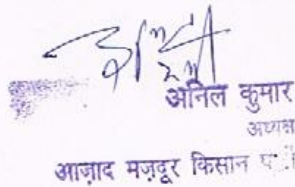 अनिल कुमार
अध्यक्ष
आज़ाद मज़दूर किसान